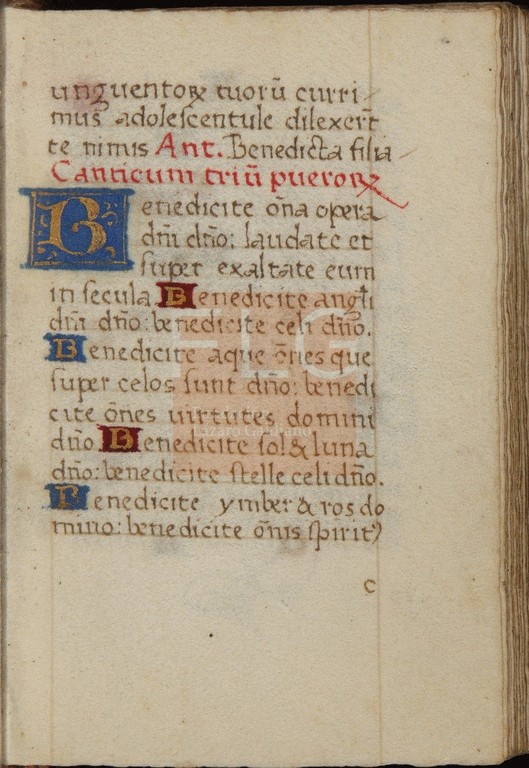 unguentoꝝ tuoꝝ curri-
mus adolescentule dilexerūt
te nimis Ant. Benedicta filia
Canticum triū pueroꝝ
Benedicite oīna opera
dn̄i dn̄o: laudate et
super exaltate eum
in secula Benedicite angli
dn̄i dn̄o: benedicite celi dn̄o.
Benedicite aque on̄es que
super celos sunt dn̄o: benedi
cite on̄es uirtutes domini
dn̄o Benedicite sol & luna
dn̄o: benedicite stelle celi dn̄o.
Benedicite ymber & ros do
mino: benedicite on̄is spirit9
c
FLG
Lázaro Galdiano